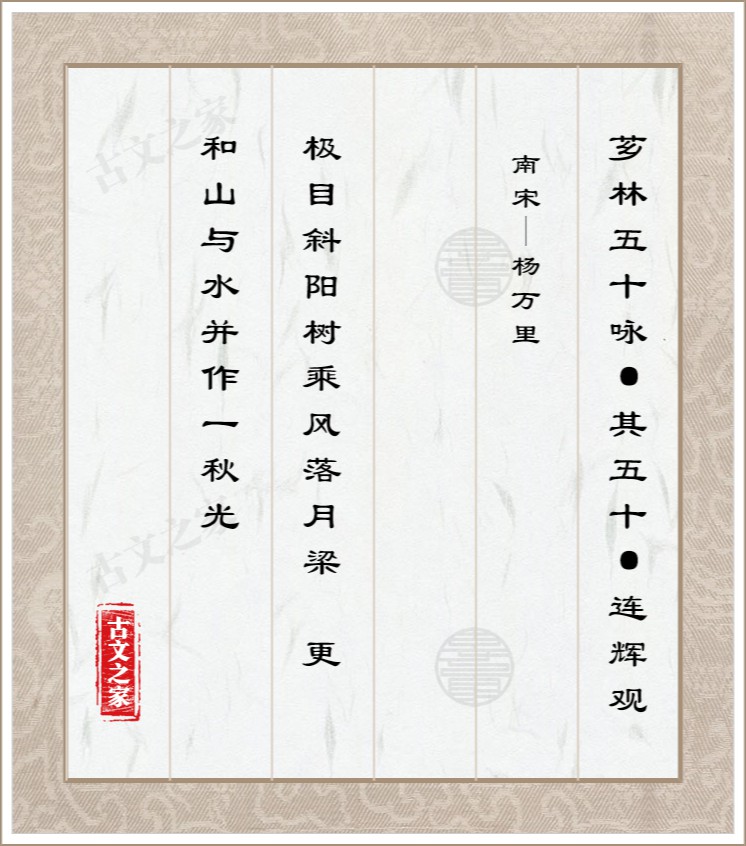 芗林五十咏●其五十●连辉观
南宋—杨万里
极目斜阳树乘风落月梁 更
和山与水并作一秋光
古文之家
古文之家
古文之家